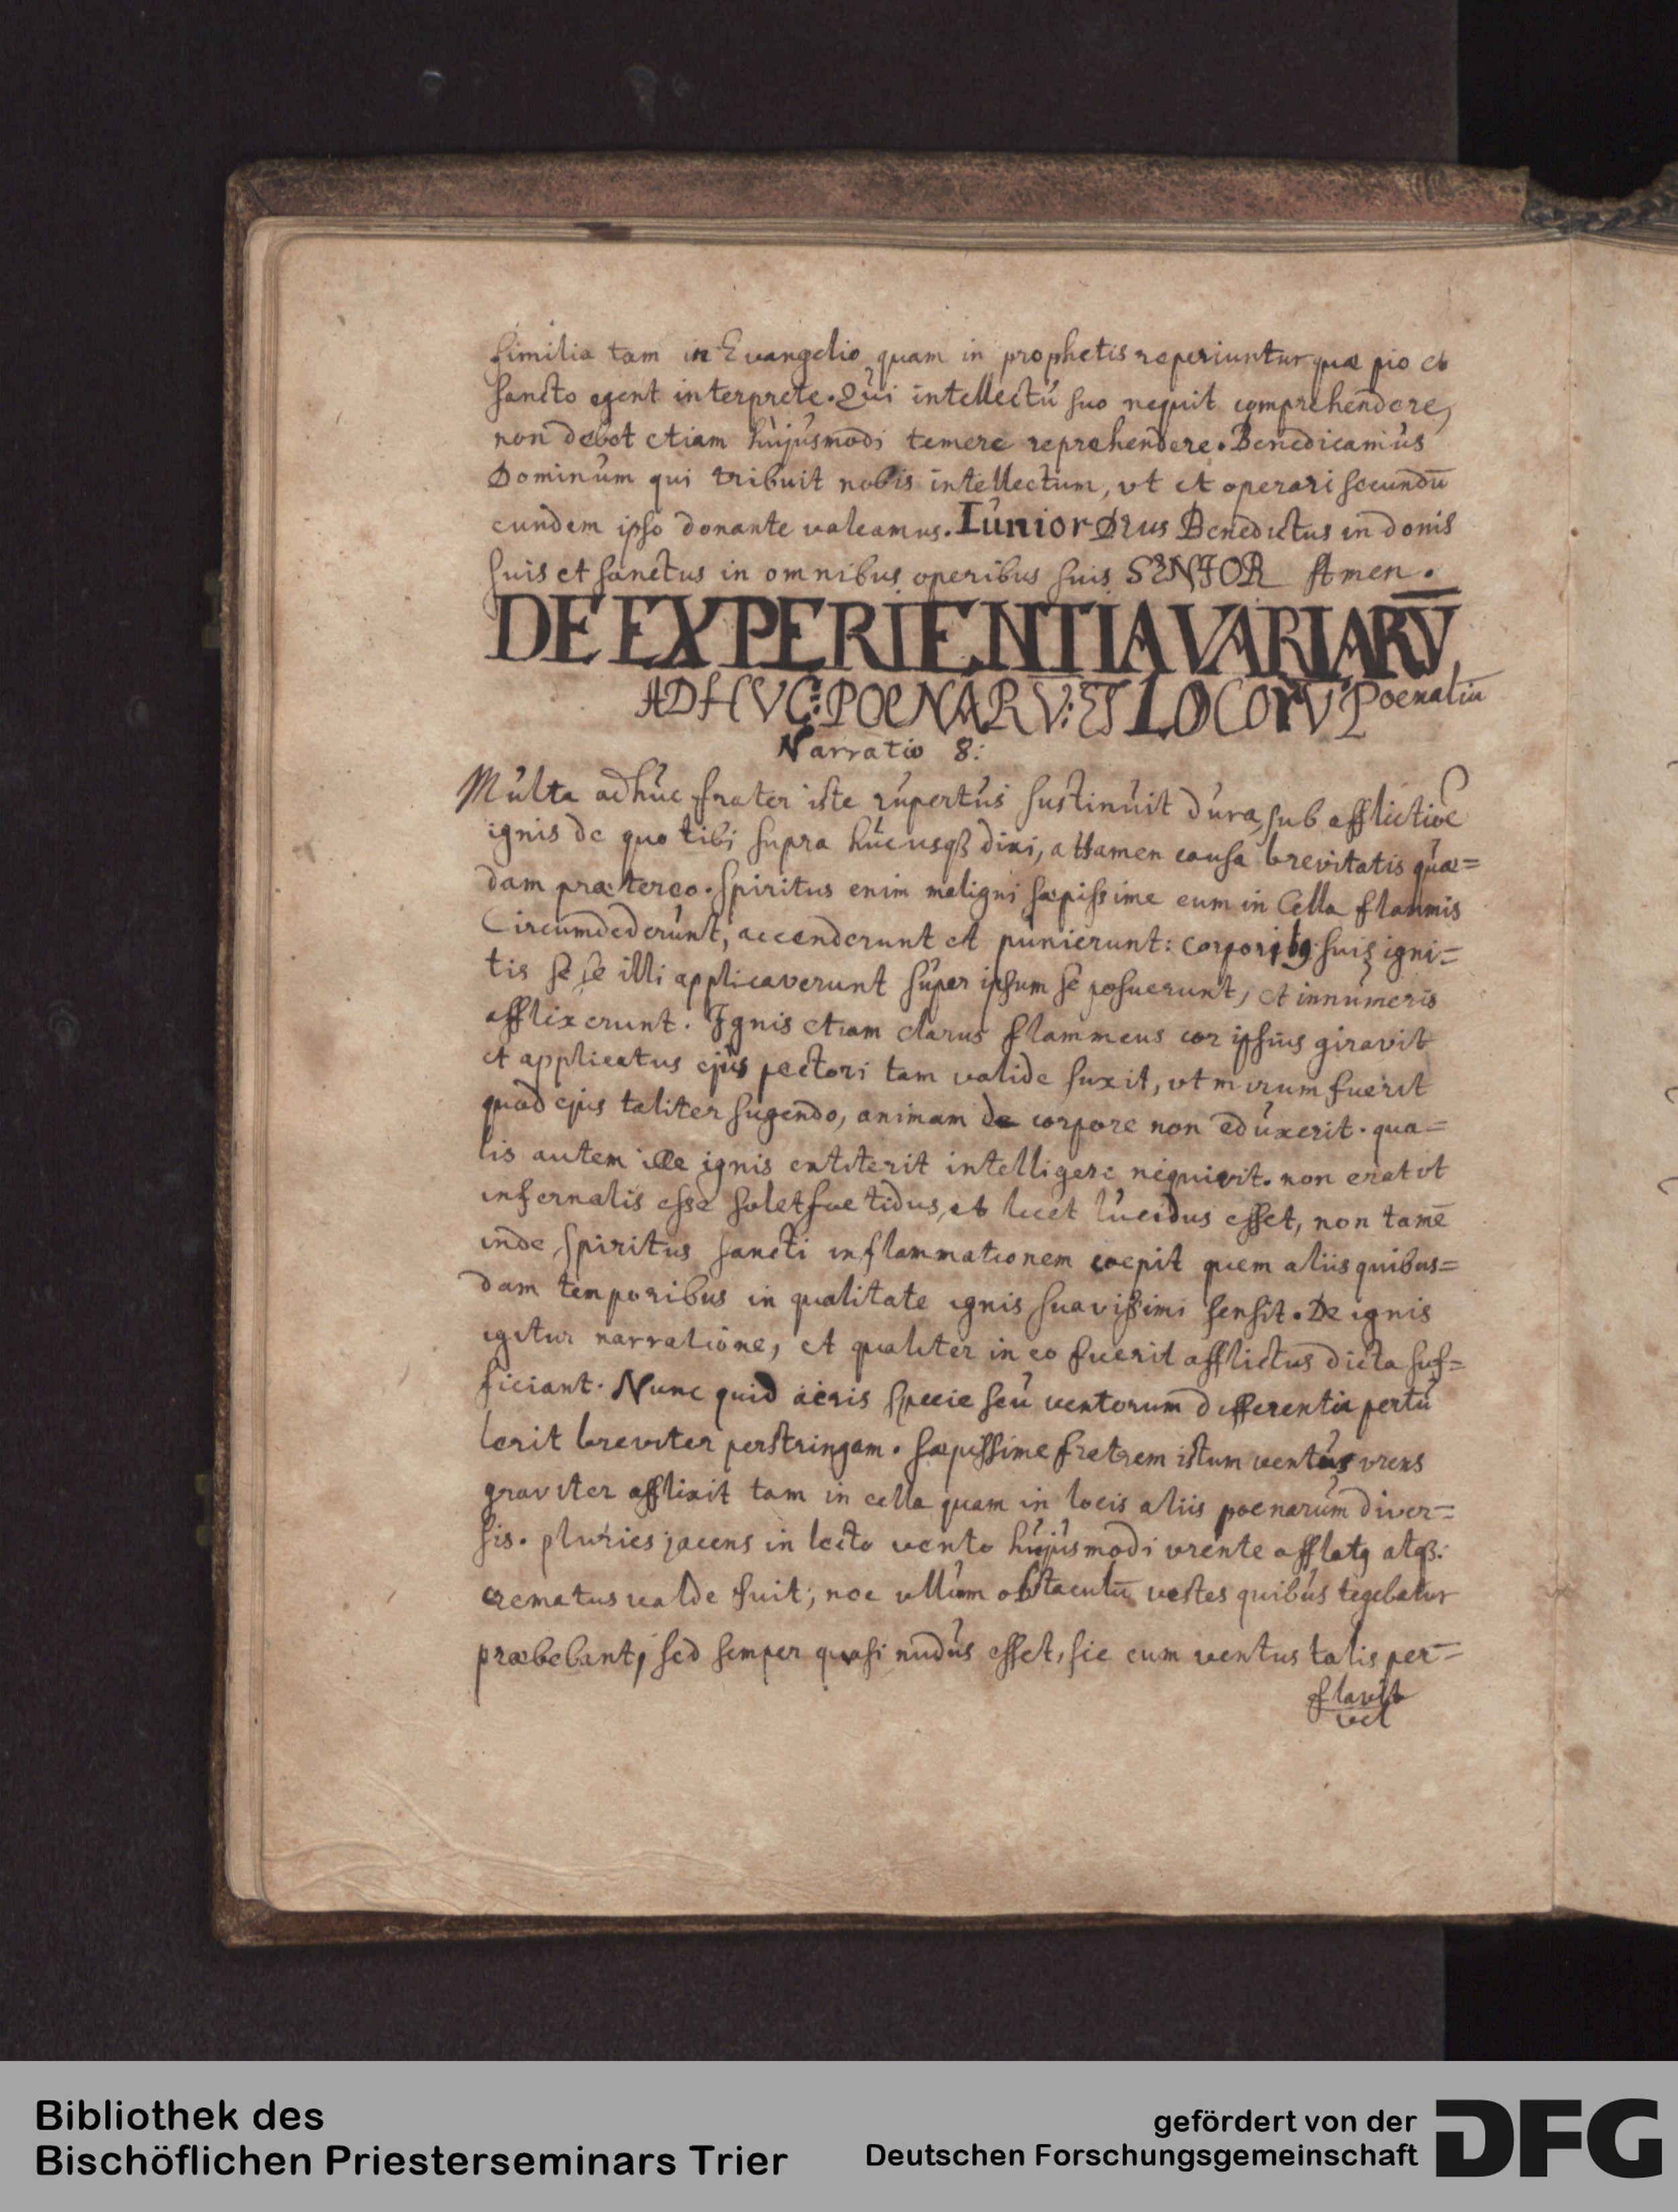 similia tam in Evangelio quam in prophetis reperiuntur quæ pio et
sancto egent interprete. Qui intellectu suo nequit comprehendere,
non debet etiam hujusmodi temere reprehendere. Benedicamus
Dominum qui tribuit nobis intellectum, vt et operari secundū
eundem ipso donante valeamus. Iunior Benedictus in donis
suis et sanctus in omnibus operibus suis SENIOR Amen.
DE EXPERIENTIA VARIARV̄
ADHVC: POENARV: ET LOCORV Poenaliū
Narratio 8:
Multa adhuc frater iste rupertus sustinuit dura, sub afflictiõe
ignis de quo tibi supra hucusqȝ dixi, attamen causa brevitatis quæ=
dam prætereo. Spiritus enim maligni sæpissime eum in Cella flammis
Circumdederunt, accenderunt et punierunt: corporibꝯ suis igni=
tis se se illi applicaverunt super ipsum se posuerunt, et innumeris
afflixerunt. Ignis etiam clarus flammeus cor ipsius giravit
et applicatus ejus pectori tam valide suxit, vt mirum fuerit
quod ejus taliter sugendo, animam de corpore non eduxerit. qua=
lis autem ille ignis extiterit intelligere nequivit. non erat vt
infernalis esse solet foetidus, et licet lucidus esset, non tamē
inde spiritus sancti inflammationem coepit quem aliis quibus=
dam temporibus in qualitate ignis suavissimi sensit. De ignis
igitur narratione, et qualiter in eo fuerit afflictus dicta suf=
ficiant. Nunc quid aëris specie seu ventorum differentia pertu
lerit breviter perstringam. sæpissime fratrem istum ventus vrens
graviter afflixit tam in cella quam in locis aliis poenarum diver=
sis. pluries jacens in lecto vento hujusmodi vrente afflatꝯ atqȝ:
crematus valde fuit; nec vllum obstaculū vestes quibus tegebatur
præbebant, sed semper quasi nudus esset, sic eum ventus talis per=
flavit
vel
Bibliothek des
Bischöflichen Priesterseminars Trier
gefördert von der
Deutschen Forschungsgemeinschaft
DFG